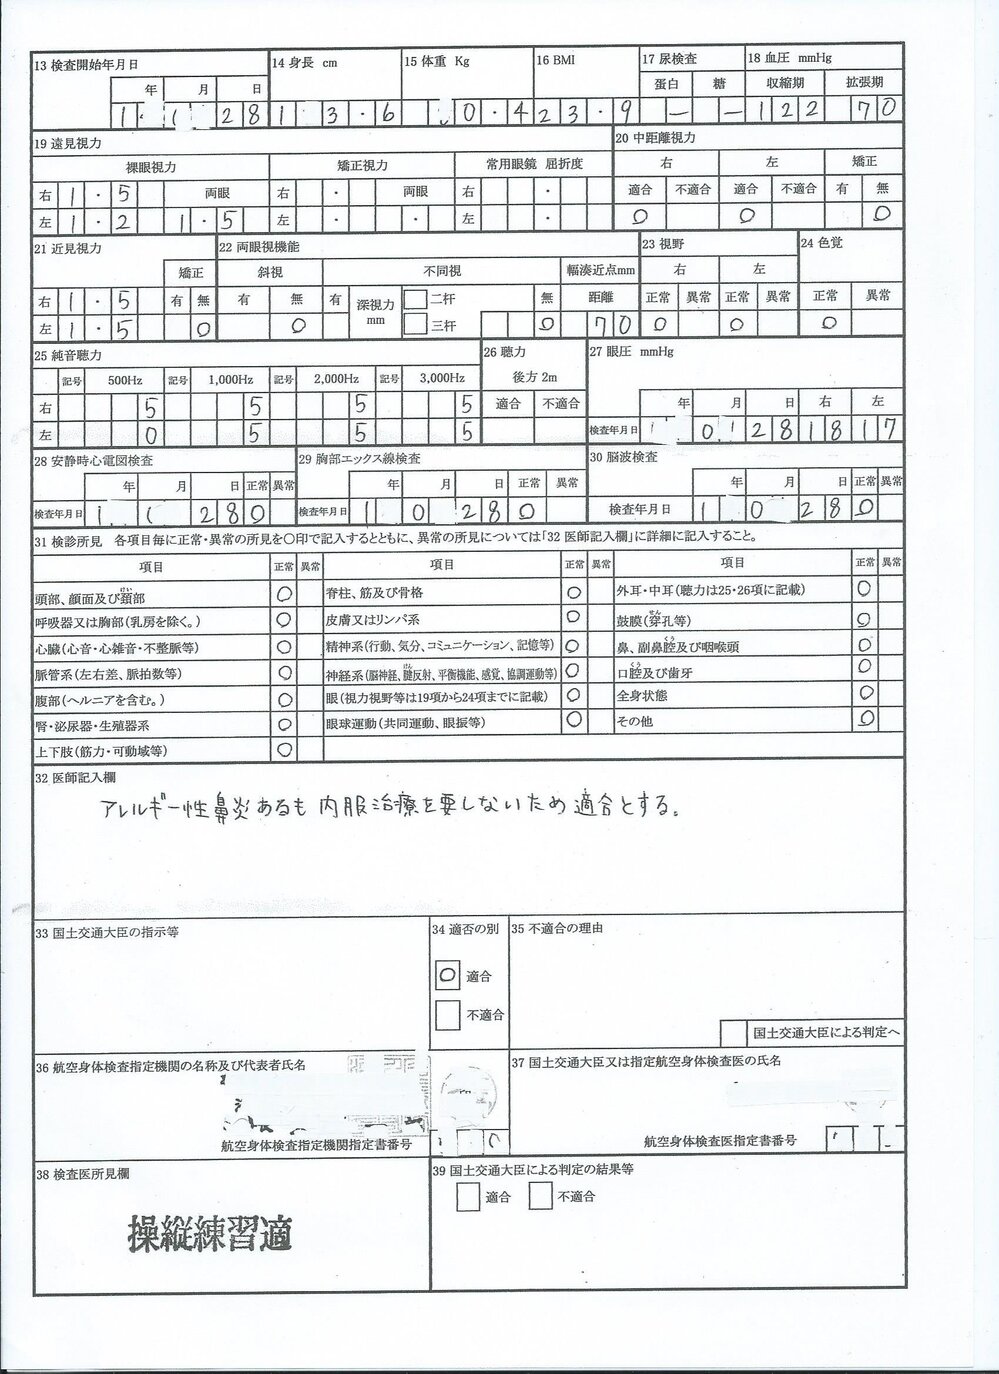 13 検査開始年月日 14 身長 cm 15 体重 Kg 16 BMI 17 尿検査 18 血圧 mmHg
年 月 日 蛋白 糖 収縮期 拡張期
1 1 28 1 3・6 0・4 23・9 － － 122 70
19 遠見視力 20 中距離視力
裸眼視力 矯正視力 常用眼鏡 屈折度 右 左 矯正
右 1・5 両眼 右 ・ 両眼 右 ・ 適合 不適合 適合 不適合 有 無
左 1・2 1・5 左 ・ ・ 左 ・ ○ ○ ○
21 近見視力 22 両眼視機能 23 視野 24 色覚
矯正 斜視 不同視 輻湊近点mm 右 左
右 1・5 有 無 有 無 有 深視力 mm 二杆 無 距離 正常 異常 正常 異常 正常 異常
左 1・5 ○ ○ 三杆 ○ 70 ○ ○ ○
25 純音聴力 26 聴力 27 眼圧 mmHg
記号 500Hz 記号 1,000Hz 記号 2,000Hz 記号 3,000Hz 後方 2m
右 5 5 5 5 適合 不適合 年 月 日 右 左
左 0 5 5 5 検査年月日 0 1 28 18 17
28 安静時心電図検査 29 胸部エックス線検査 30 脳波検査
年 月 日 正常 異常 年 月 日 正常 異常 年 月 日 正常 異常
検査年月日 1 1 28 ○ 検査年月日 1 0 28 ○ 検査年月日 1 0 28 ○
31 検診所見 各項目毎に正常・異常の所見を〇印で記入するとともに、異常の所見については「32 医師記入欄」に詳細に記入すること。
項目 正常 異常 項目 正常 異常 項目 正常 異常
頭部、顔面及び頚部 ○ 脊柱、筋及び骨格 ○ 外耳・中耳(聴力は25・26項に記載) ○
呼吸器又は胸部(乳房を除く。) ○ 皮膚又はリンパ系 ○ 鼓膜(穿孔等) ○
心臓(心音・心雑音・不整脈等) ○ 精神系(行動、気分、コミュニケーション、記憶等) ○ 鼻、副鼻腔及び咽喉頭 ○
脈管系(左右差、脈拍数等) ○ 神経系(脳神経、腱反射、平衡機能、感覚、協調運動等) ○ 口腔及び歯牙 ○
腹部(ヘルニアを含む。) ○ 眼(視力視野等は19項から24項までに記載) ○ 全身状態 ○
腎・泌尿器・生殖器系 ○ 眼球運動(共同運動、眼振等) ○ その他 ○
上下肢(筋力・可動域等) ○
32 医師記入欄
アレルギー性鼻炎あるも内服治療を要しないため適合とする。
33 国土交通大臣の指示等 34 適否の別 35 不適合の理由
○ 適合
不適合
国土交通大臣による判定へ
36 航空身体検査指定機関の名称及び代表者氏名 37 国土交通大臣又は指定航空身体検査医の氏名
航空身体検査指定機関指定書番号 航空身体検査医指定書番号
38 検査医所見欄 39 国土交通大臣による判定の結果等
適合 不適合
操縦練習適